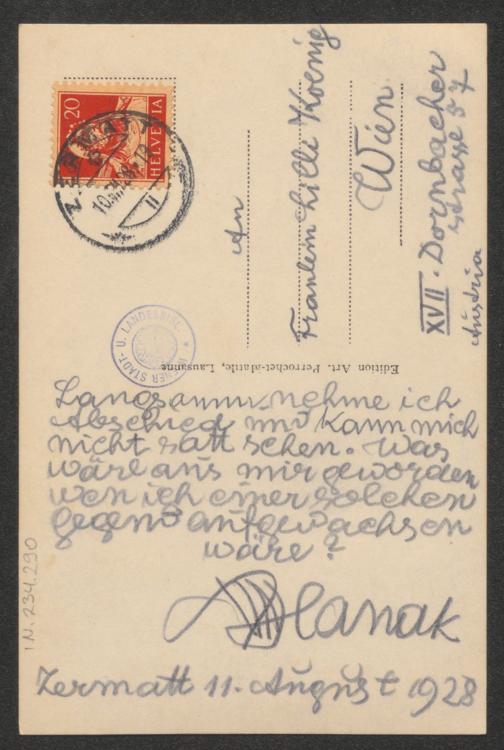 20
HELVETIA
ZERMATT
An
Fräulein Lilli Koenig
Wien
XVII. Dornbacher
strasse 57
Austria
WIENER STADT- U. LANDESBIBL.
Edition Art. Perrochet-Matile, Lausanne
Langsamm nehme ich
Abschied und kann mich
nicht satt sehen. Was
wäre aus mir geworden
wen ich einer solchen
gegend aufgewachsen
wäre?
Hanak
Zermatt 11. August 1928
IN. 234.290